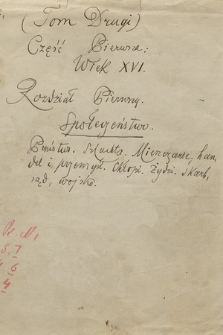 (Tom Drugi)
Część Pierwsza:
Wiek XVI.
Rozdział Pierwszy.
Społeczeństwo.
Państwo. Szlachta. Mieszczanie, han-
del i przemysł. Chłopi. Żydzi. Skarb,
sąd, wojsko.